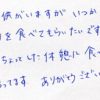 供がいますが いつか
を食べてもらいたいです
ちょっとした休憩に食べ
ってます ありがとうござい